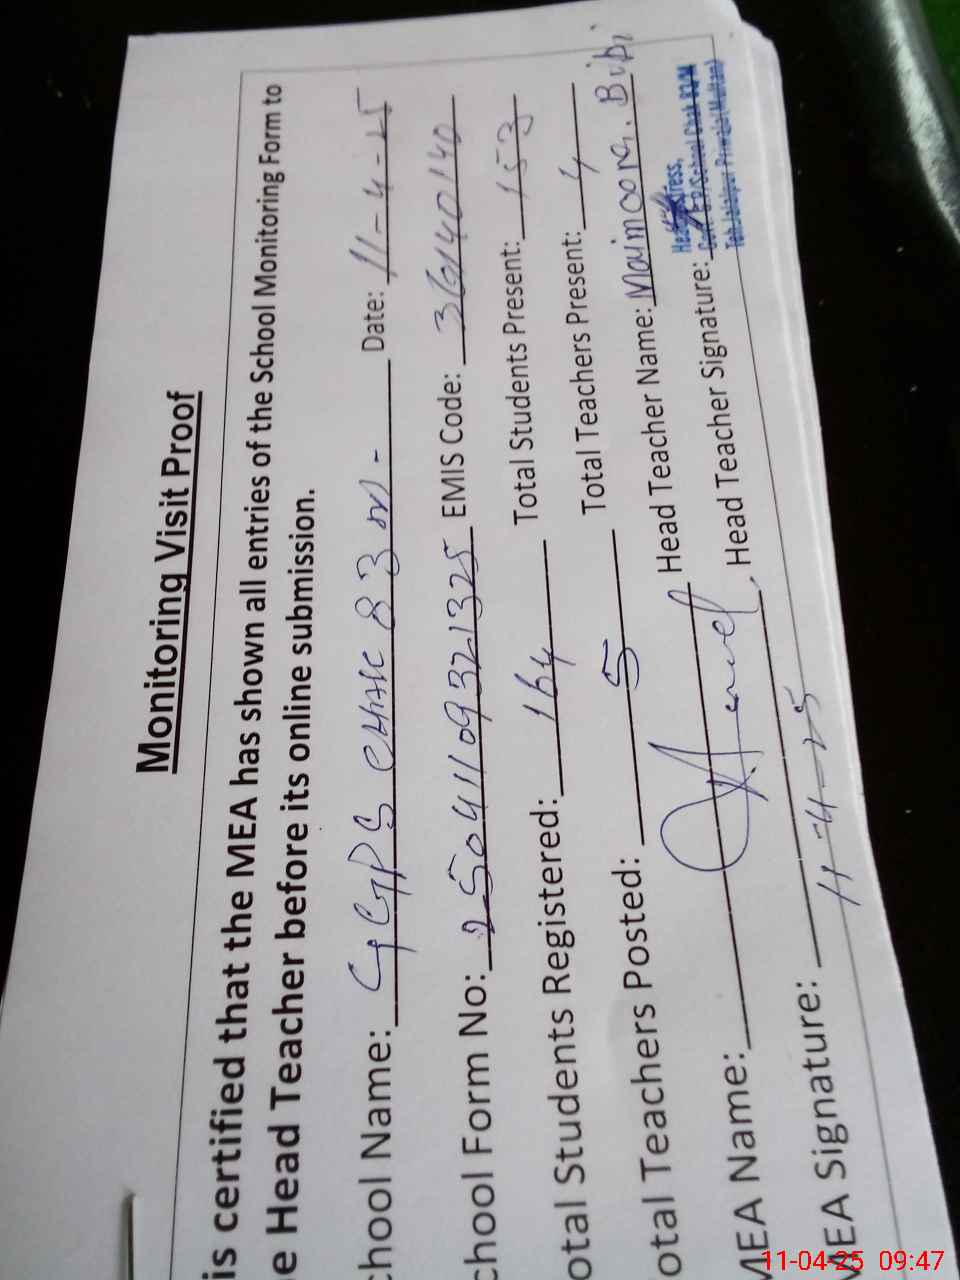 Monitoring Visit Proof
is certified that the MEA has shown all entries of the School Monitoring Form to
e Head Teacher before its online submission.
chool Name: GGPS CHAK 83 M - Date: 11-4-25
chool Form No: 25041109321325 EMIS Code: 36140140
otal Students Registered: 164 Total Students Present: 153
otal Teachers Posted: 5 Total Teachers Present: 4
MEA Name: Head Teacher Name: Maimoona Bibi
MEA Signature: 11-4-25 Head Teacher Signature:
11-04-25 09:47